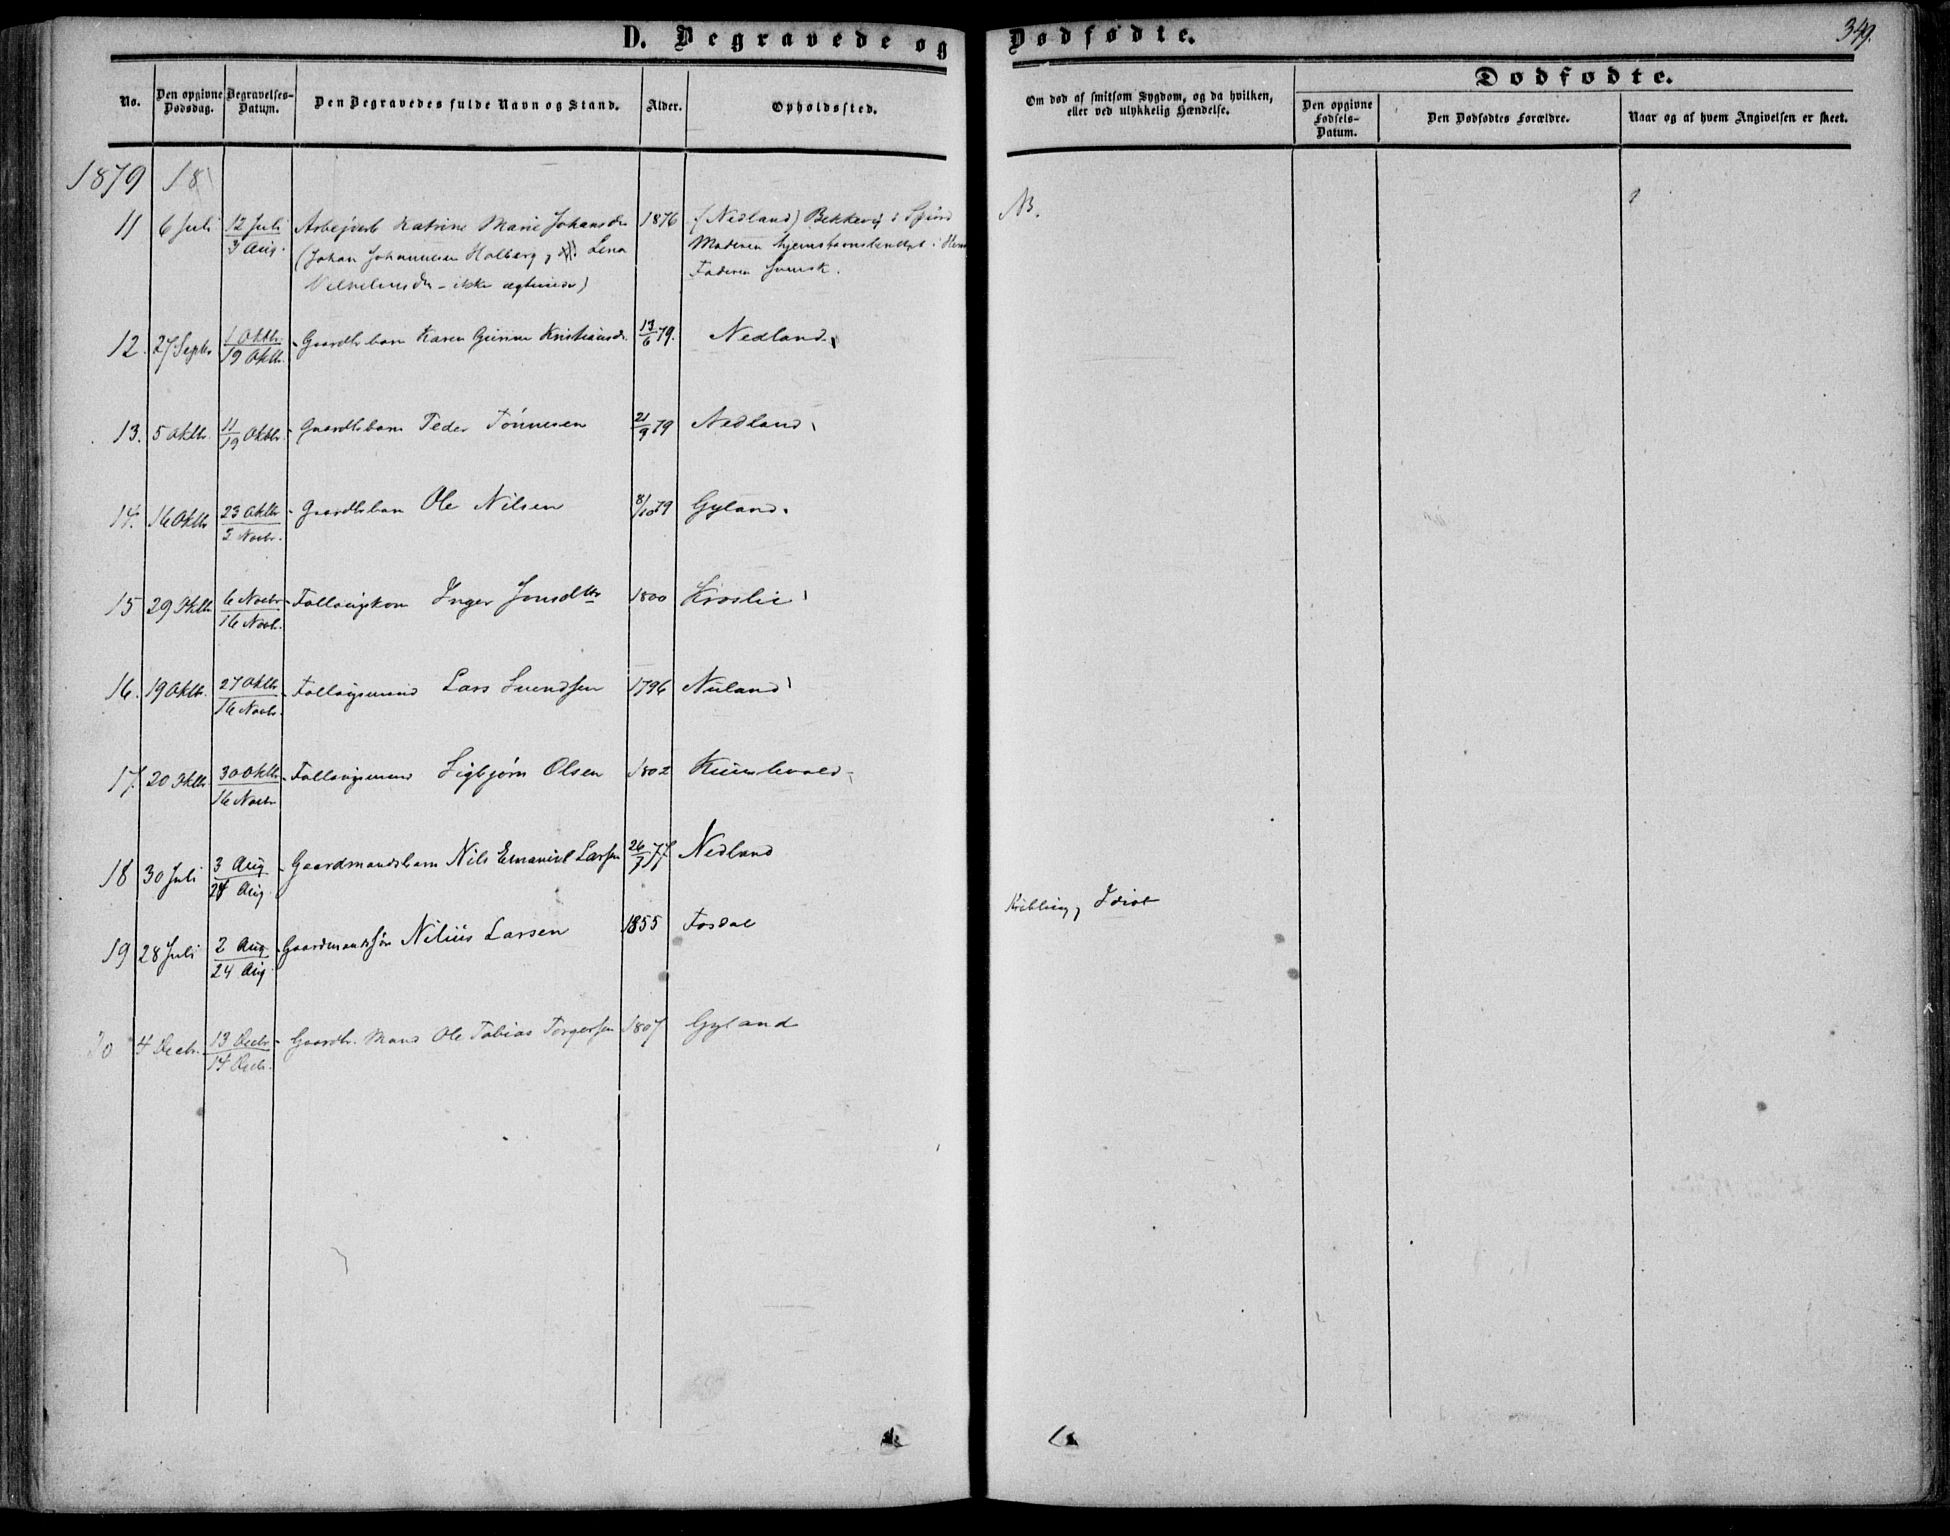 D. Begravede og Dødfødte.
349.
Dødfødte.
No. Den opgivne Dødsdag. Begravelses-Datum. Den Begravedes fulde Navn og Stand. Alder. Opholdssted. Om død af smitsom Sygdom, og da hvilken, eller ved ulykkelig Hændelse. Den opgivne Fødsels-Datum. Den Dødfødtes Forældre. Naar og af hvem Angivelsen er skeet.
1879 18
11 6 Juli 12 Juli 3 Aug. Arbejderb Katrine Marie Johansdr 1876 (Nedland) Bekkevig i NB.
(Johan Johannesen Holberg og Lena Moderen hjemstavnsberettet i
ikke ægteviede) Faderen svensk.
12. 27 Septr 1 Oktbr. 19 Oktb. Gaardbr.barn Karen Gurine Kristiansdr. 13/6 79. Nedland
13. 5 Oktb. 11/19 Oktbr. Gaardbr.barn Peder Tønnesen 21/9 79 Nedland
14. 16 Oktb 23 Oktb 2 Novbr. Gaardbr.barn Ole Nilsen 8/10 79 Gyland.
15 29 Oktb 6 Novbr 16 Novb. Follaugskone Inger Jonsdtr 1800 Kroslie
16. 19 Oktb. 27 Oktb 16 Novbr. Follaugsmand Lars Svendsen 1796 Nuland
17. 20 Oktb. 30 Oktb 16 Novbr Follaugsmand Sigbjørn Olsen 1802 Kumlevold
18 30 Juli 3 Aug 24 Aug. Gaardmandsbarn Nils Emanuel Larsen 26/7 77. Nedland
19 28 Juli 2 Aug 24 Aug. Gaardmandssøn Nilius Larsen 1855 Fosdal Krøbling, Idiot
20 4 Decbr. 13 Decbr 14 Decbr. Gaardbr. Mand Ole Tobias Torgersen 1807 Gyland